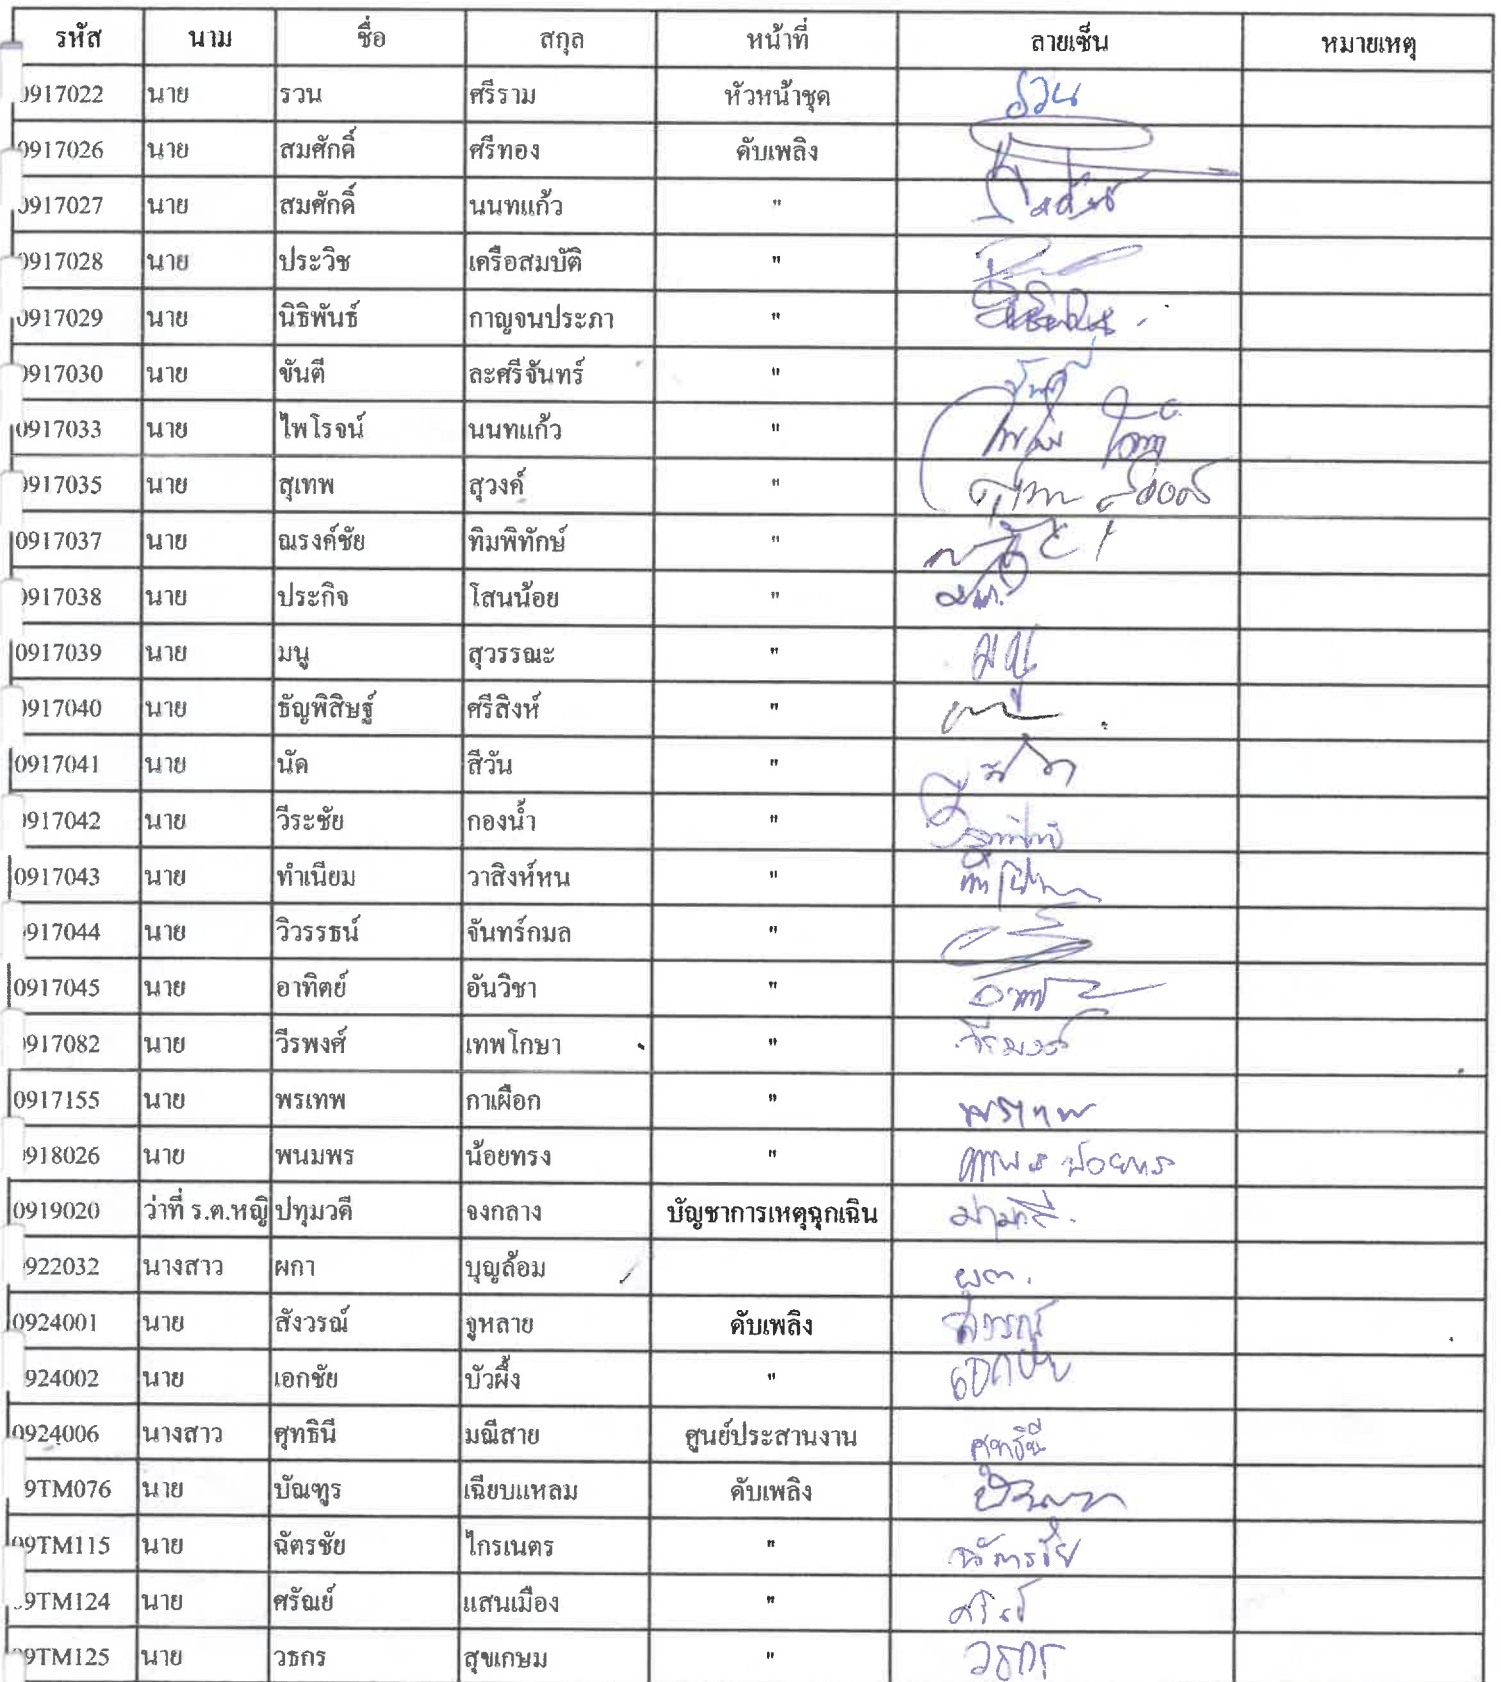 รหัส นาม ชื่อ สกุล หน้าที่ ลายเซ็น หมายเหตุ
0917022 นาย รวน ศรีราม หัวหน้าชุด รวน
0917026 นาย สมศักดิ์ ศรีทอง ดับเพลิง
0917027 นาย สมศักดิ์ นนทแก้ว "
0917028 นาย ประวิช เครือสมบัติ "
0917029 นาย นิธิพันธ์ กาญจนประภา "
0917030 นาย ขันตี ละศรีจันทร์ " ขันตี
0917033 นาย ไพโรจน์ นนทแก้ว "
0917035 นาย สุเทพ สุวงค์ " สุเทพ สุวงค์
0917037 นาย ณรงค์ชัย ทิมพิทักษ์ "
0917038 นาย ประกิจ โสนน้อย "
0917039 นาย มนู สุวรรณะ " มนู
0917040 นาย ธัญพิสิษฐ์ ศรีสิงห์ "
0917041 นาย นัด สีวัน "
0917042 นาย วีระชัย กองน้ำ "
0917043 นาย ทำเนียม วาสิงห์หน "
0917044 นาย วิวรรธน์ จันทร์กมล "
0917045 นาย อาทิตย์ อันวิชา "
0917082 นาย วีรพงศ์ เทพโกษา " วีรพงศ์
0917155 นาย พรเทพ กาเผือก " พรเทพ
0918026 นาย พนมพร น้อยทรง " พนมพร น้อยทรง
0919020 ว่าที่ ร.ต.หญิ ปทุมวดี จงกลาง บัญชาการเหตุฉุกเฉิน
0922032 นางสาว ผกา บุญล้อม ผกา.
0924001 นาย สังวรณ์ จูหลาย ดับเพลิง สังวรณ์
0924002 นาย เอกชัย บัวผึ้ง " เอกชัย
0924006 นางสาว ศุทธินี มณีสาย ศูนย์ประสานงาน ศุทธินี
09TM076 นาย บัณฑูร เฉียบแหลม ดับเพลิง
09TM115 นาย ฉัตรชัย ไกรเนตร " ฉัตรชัย
09TM124 นาย ศรัณย์ แสนเมือง "
09TM125 นาย วรกร สุขเกษม " วรกร